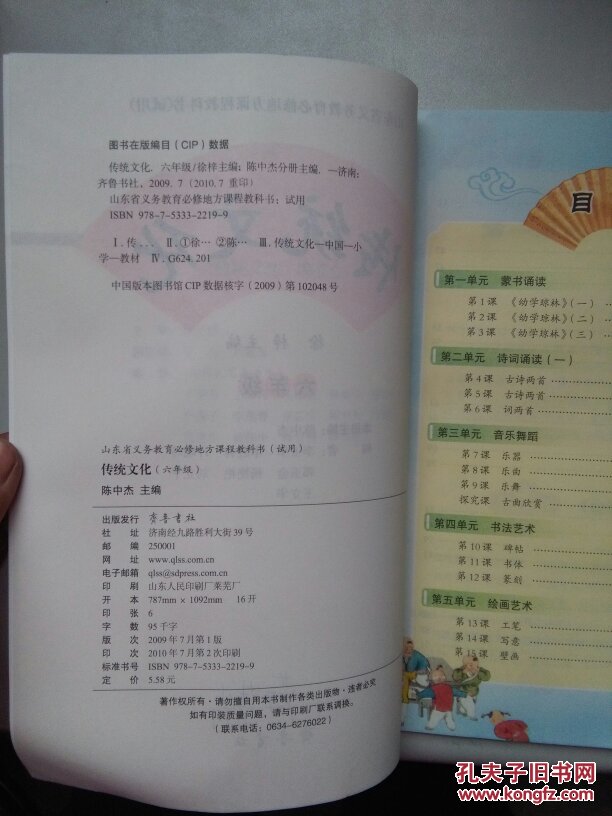 图书在版编目（CIP）数据
传统文化. 六年级/徐梓主编；陈中杰分册主编. —济南：
齐鲁书社，2009.7（2010.7 重印）
山东省义务教育必修地方课程教科书：试用
ISBN 978-7-5333-2219-9
Ⅰ.传… Ⅱ.①徐… ②陈… Ⅲ.传统文化—中国—小
学—教材 Ⅳ.G624.201
中国版本图书馆CIP数据核字（2009）第102048号
山东省义务教育必修地方课程教科书（试用）
传统文化（六年级）
陈中杰 主编
出版发行 齐鲁书社
社 址 济南经九路胜利大街39号
邮 编 250001
网 址 www.qlss.com.cn
电子邮箱 qlss@sdpress.com.cn
印 刷 山东人民印刷厂莱芜厂
开 本 787mm×1092mm 16开
印 张 6
字 数 95千字
版 次 2009年7月第1版
印 次 2010年7月第2次印刷
标准书号 ISBN 978-7-5333-2219-9
定 价 5.58元
著作权所有·请勿擅自用本书制作各类出版物·违者必究
如有印装质量问题，请与印刷厂联系调换。
（联系电话：0634-6276022）
目
第一单元 蒙书诵读
第1课 《幼学琼林》（一）
第2课 《幼学琼林》（二）
第3课 《幼学琼林》（三）
第二单元 诗词诵读（一）
第4课 古诗两首
第5课 古诗两首
第6课 词两首
第三单元 音乐舞蹈
第7课 乐器
第8课 乐曲
第9课 乐舞
探究课 古曲欣赏
第四单元 书法艺术
第10课 碑帖
第11课 书体
第12课 篆刻
第五单元 绘画艺术
第13课 工笔
第14课 写意
第15课 壁画
孔夫子旧书网
www.kongfz.com